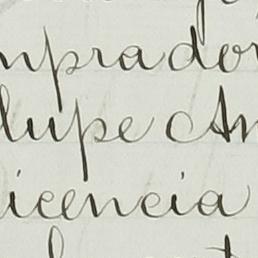 mprador
lupe An
icencia